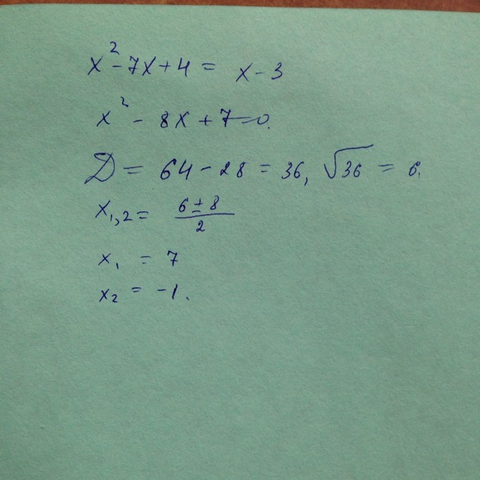 x² - 7x + 4 = x - 3
x² - 8x + 7 = 0.
D = 64 - 28 = 36, √36 = 6.
x₁,₂ = (6 ± 8)/2
x₁ = 7
x₂ = -1.